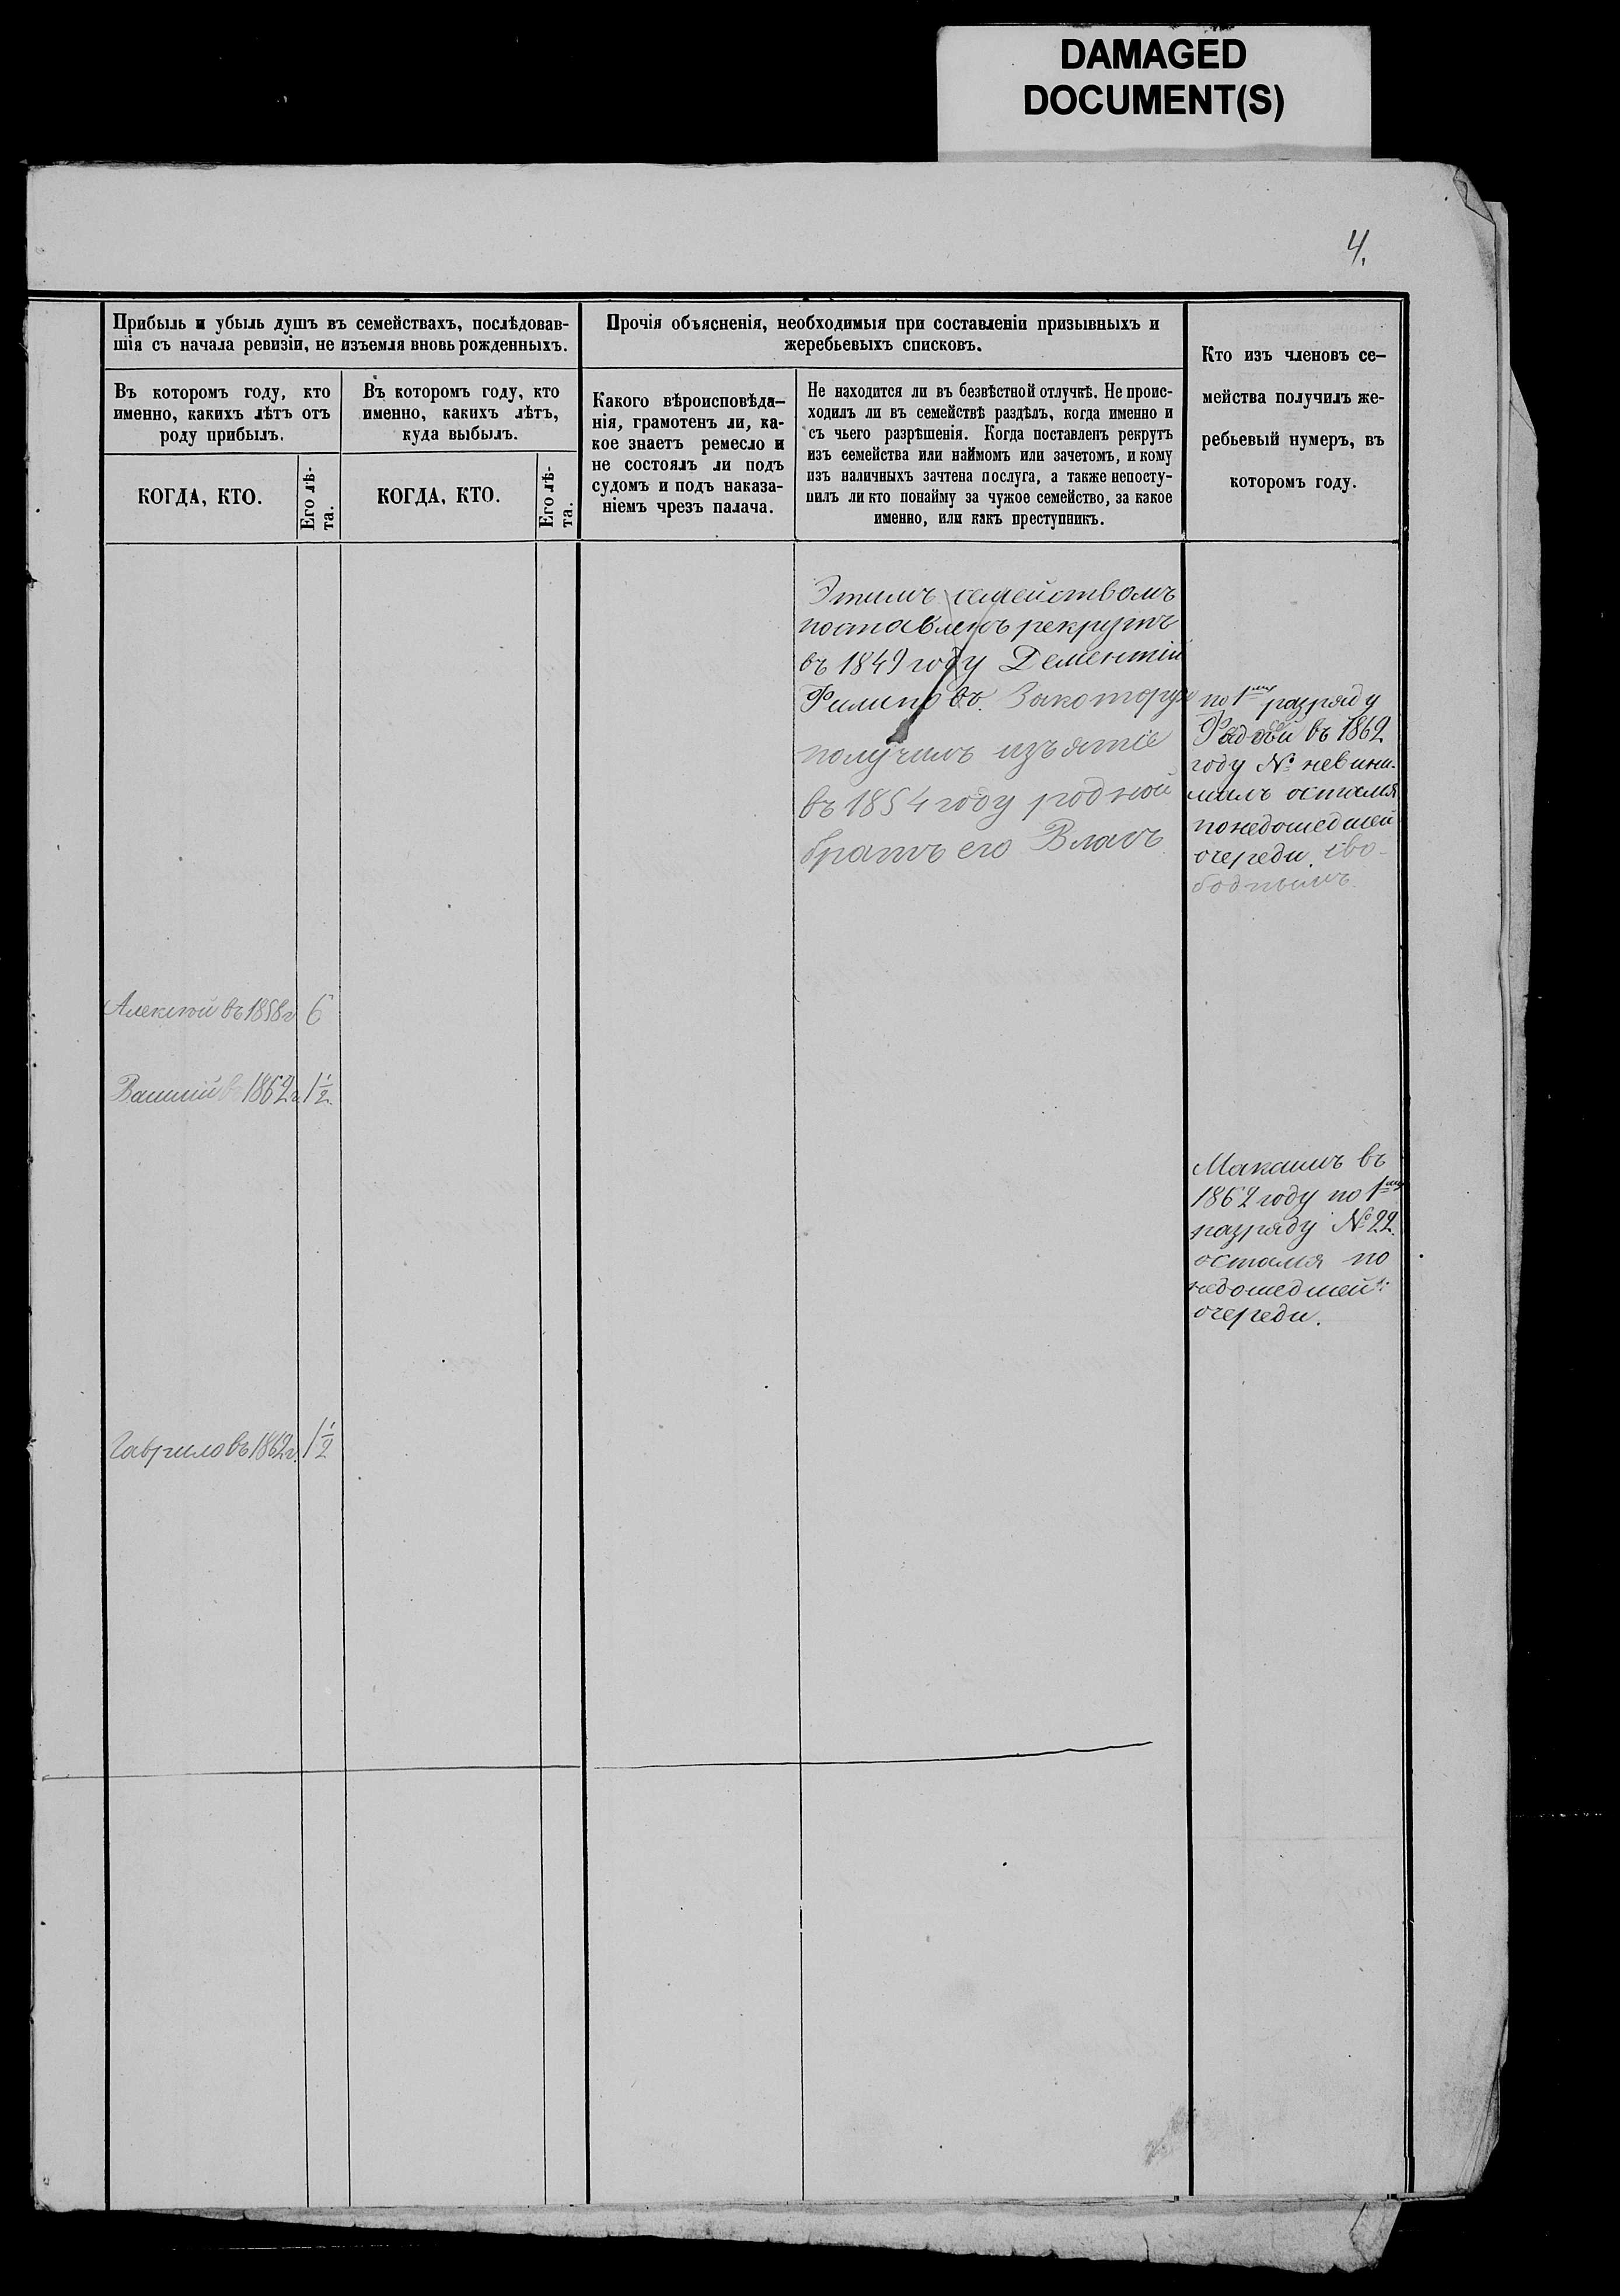 DAMAGED
DOCUMENT(S)
4.
Прибыль и убыль душъ въ семействахъ, послѣдовав-
шія съ начала ревизіи, не изъемля вновь рожденныхъ.
Въ которомъ году, кто
именно, какихъ лѣтъ отъ
роду прибылъ.
КОГДА, КТО.
Его лѣ-
та.
Въ которомъ году, кто
именно, какихъ лѣтъ,
куда выбылъ.
КОГДА, КТО.
Его лѣ-
та.
Прочія объясненія, необходимыя при составленіи призывныхъ и
жеребьевыхъ списковъ.
Какого вѣроисповѣда-
нія, грамотенъ ли, ка-
кое знаетъ ремесло и
не состоялъ ли подъ
судомъ и подъ наказа-
ніемъ чрезъ палача.
Не находится ли въ безвѣстной отлучкѣ. Не проис-
ходилъ ли въ семействѣ раздѣлъ, когда именно и
съ чьего разрѣшенія. Когда поставленъ рекрутъ
изъ семейства или наймомъ или зачетомъ, и кому
изъ наличныхъ зачтена послуга, а также непосту-
пилъ ли кто понайму за чужое семейство, за какое
именно, или какъ преступникъ.
Кто изъ членовъ се-
мейства получилъ же-
ребьевый нумеръ, въ
которомъ году.
Этимъ семействомъ
поставленъ рекрутъ
въ 1849 году Дементій
Филиповъ. Закоторую
получилъ изъятіе
въ 1854 году родной
братъ его Власъ
по 1му разряду
въ 1862
году № невыни-
малъ остался
понедошедшей
очереди сво-
боднымъ
Алексѣй въ 1858 г. 6
Василій въ 1862 г. 1 1/2
Макаимъ въ
1862 году по 1му
разряду № 22.
остался по
недошедшей
очереди.
Гаврило въ 1862 г. 1 1/2